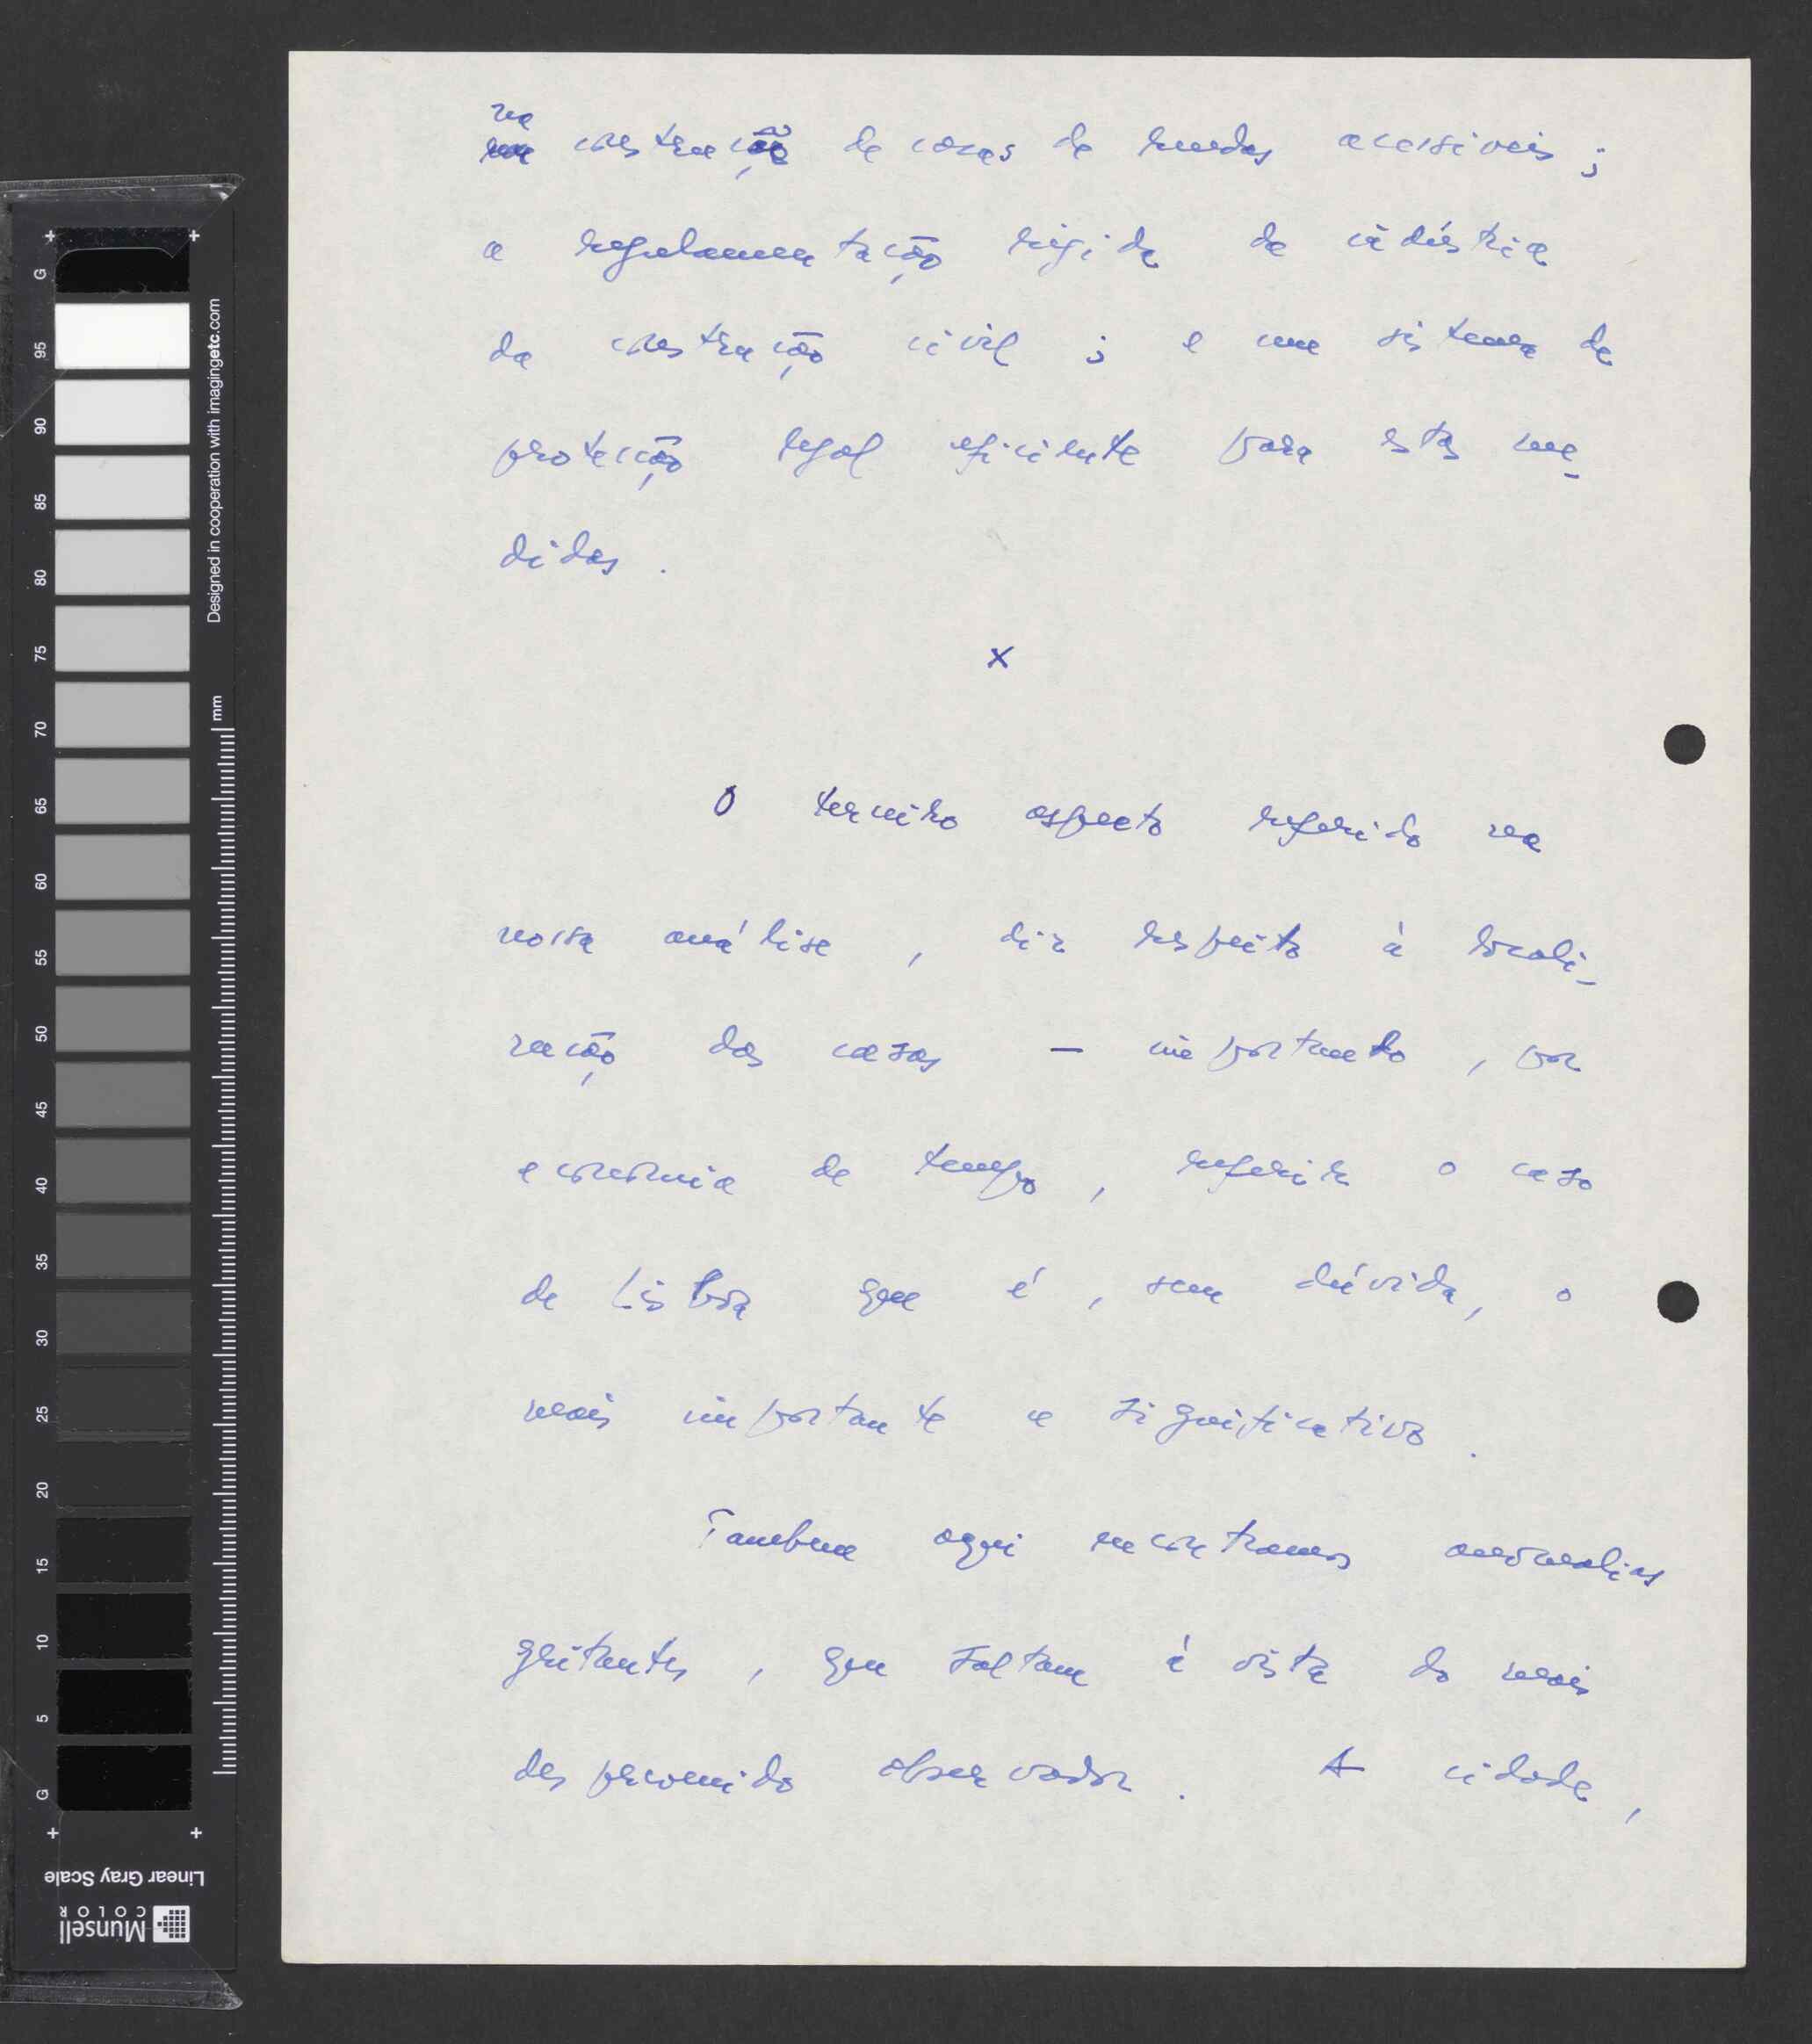 na
construção de casas de rendas acessiveis ;
a regulamentação rígida da indústria
da construção civil ; e um sistema de
protecção legal eficiente para estas me-
didas .
x
O terceiro aspecto referido na
nossa análise , diz respeito à locali-
zação das casas — importando , por
economia de tempo , referir o caso
de Lisboa que é , sem dúvida , o
mais importante e significativo .
Tambem aqui encontramos anomalias
gritantes , que saltam à vista do mais
desprevenido observador . A cidade ,
G
95
90
85
80
75
70
65
60
55
50
45
40
35
30
25
20
15
10
5
G
Designed in cooperation with imagingetc.com
mm
Linear Gray Scale
Munsell
COLOR